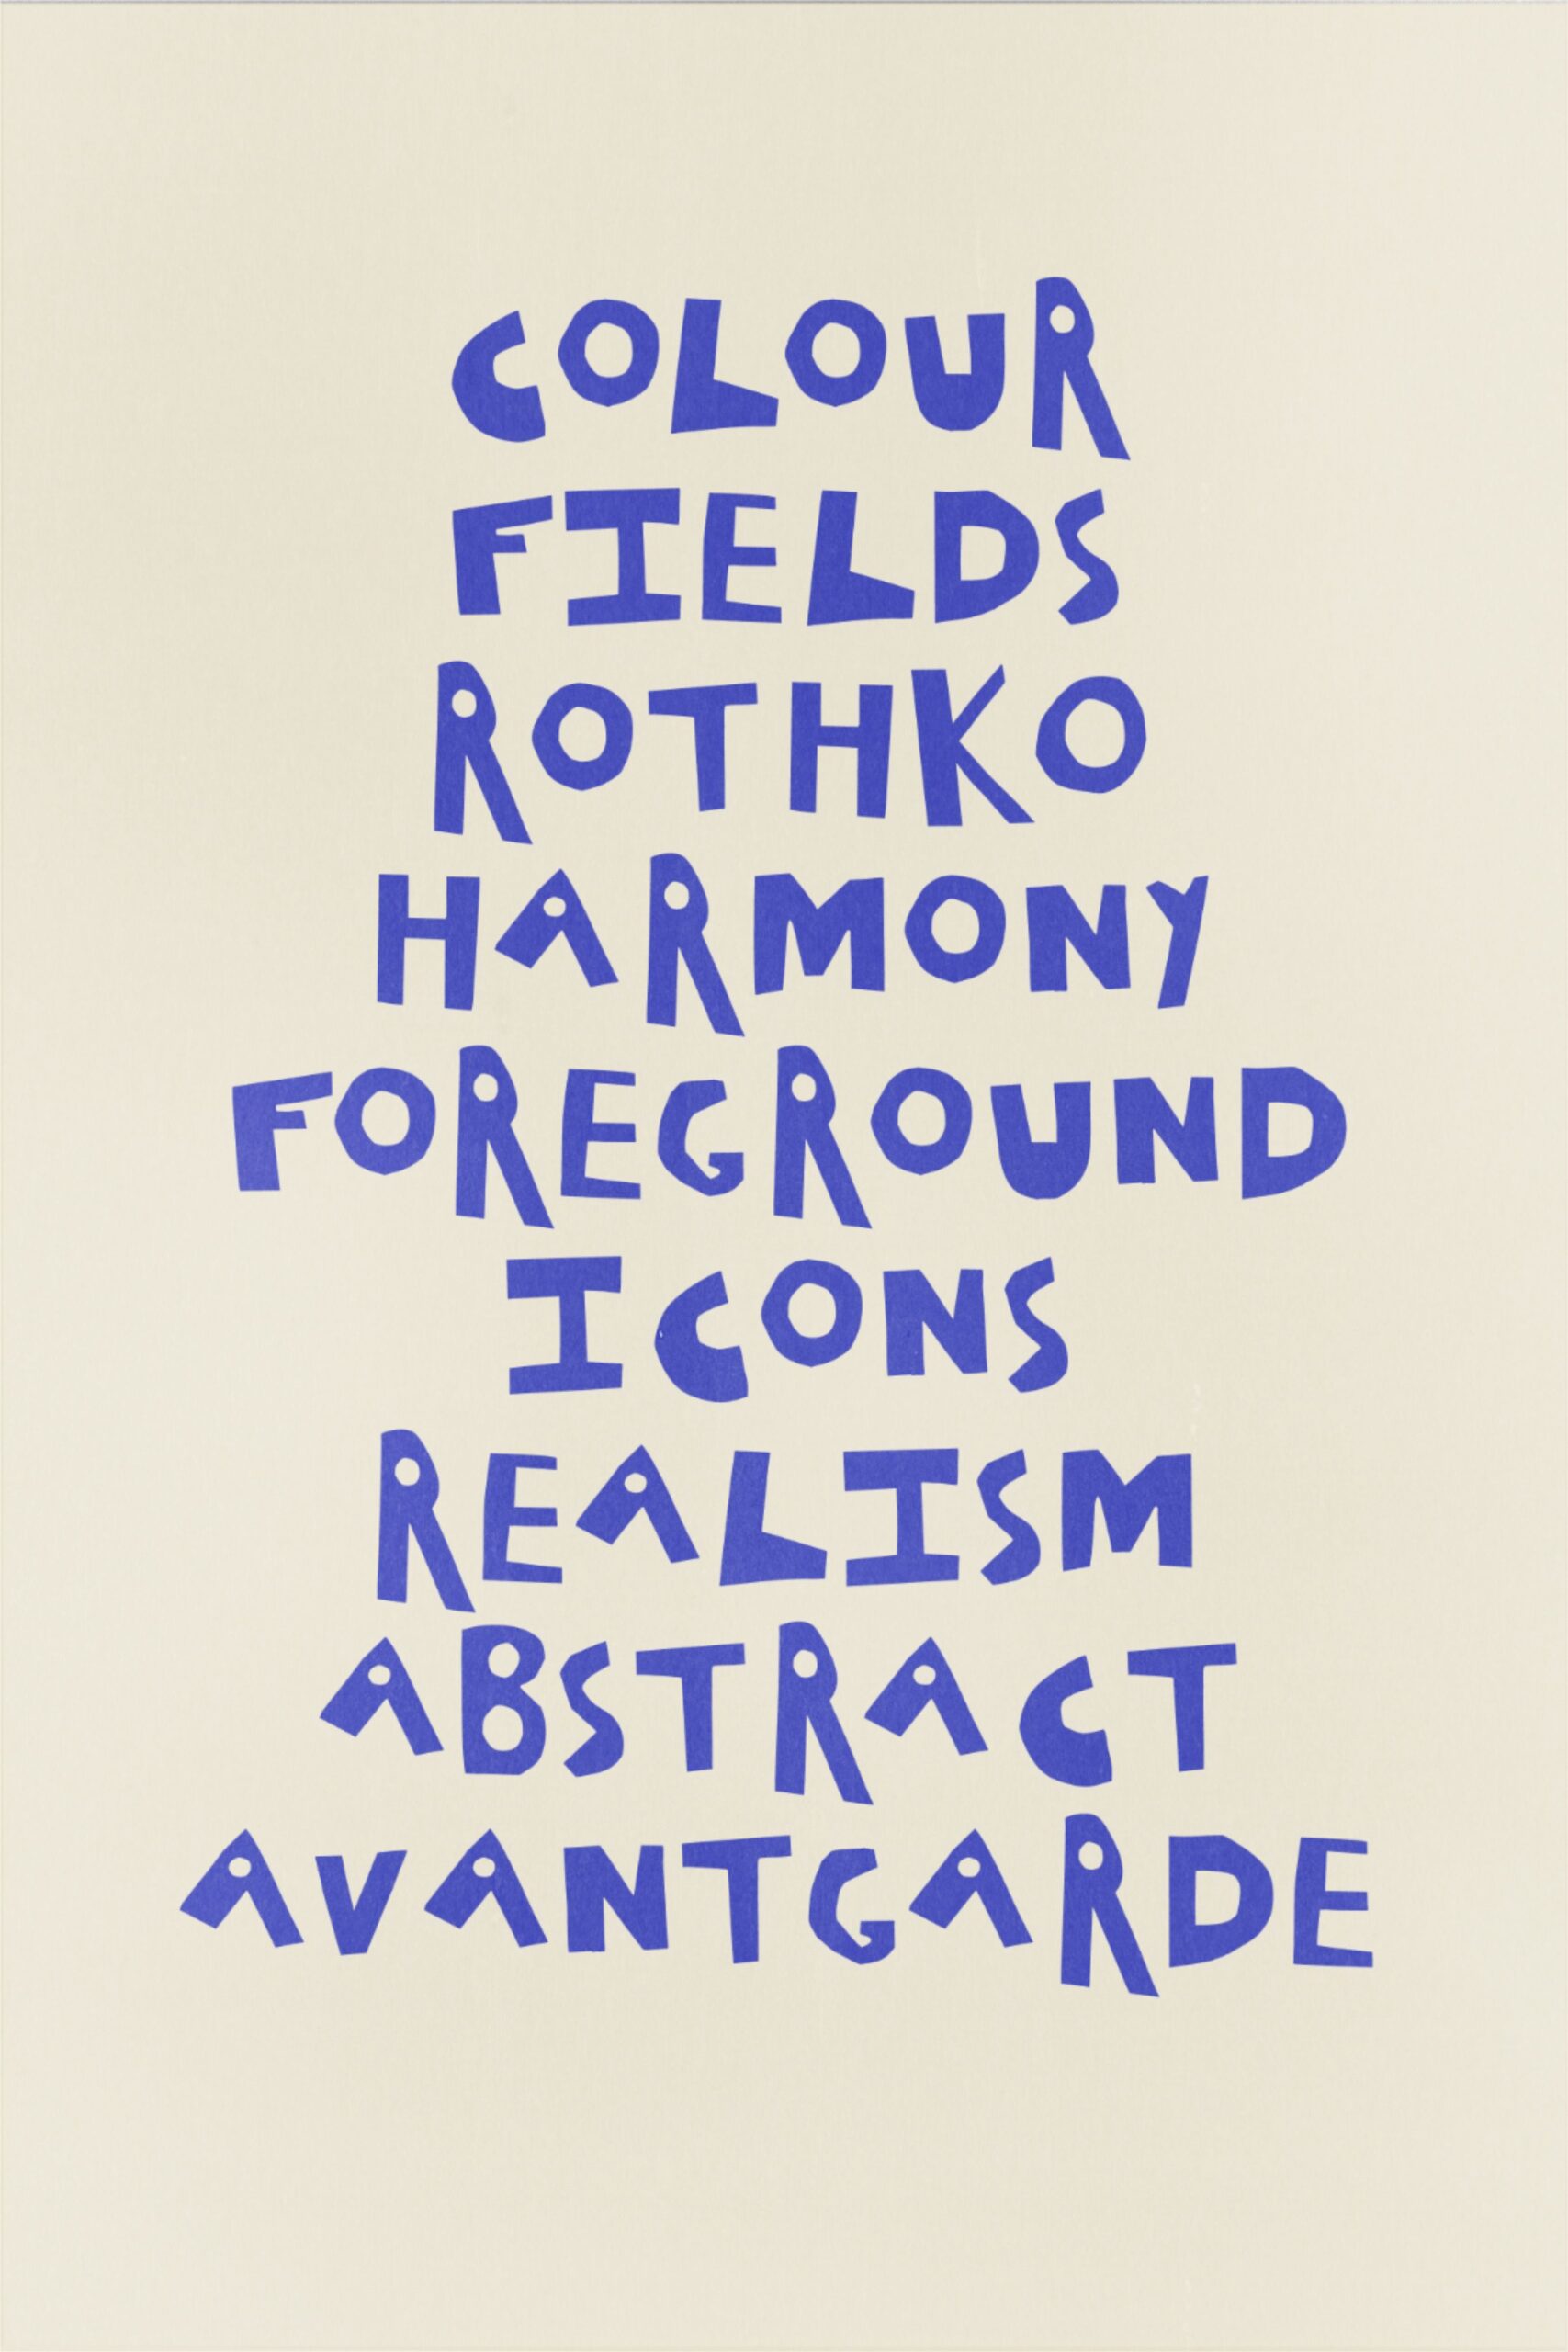 COLOUR
FIELDS
ROTHKO
HARMONY
FOREGROUND
ICONS
REALISM
ABSTRACT
AVANTGARDE